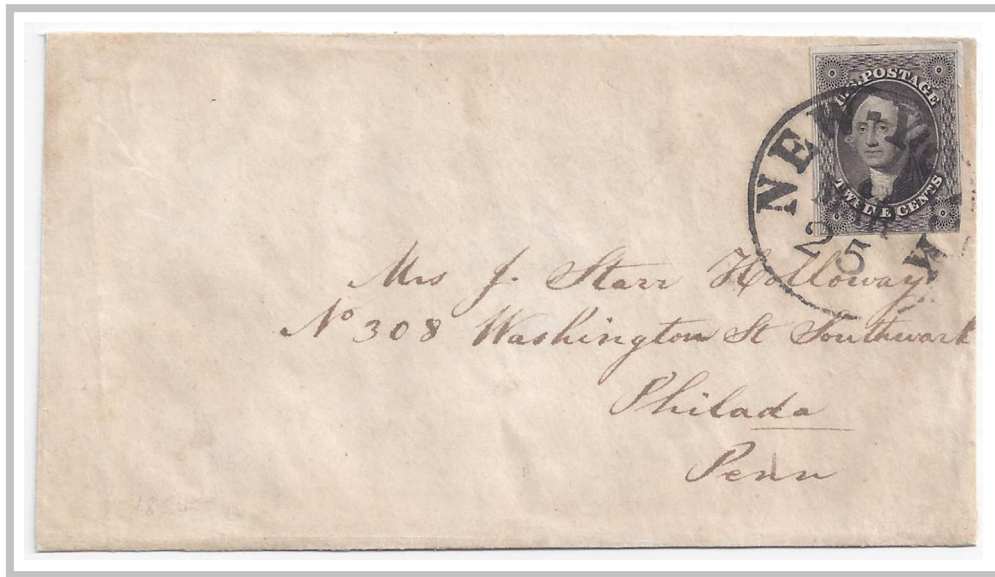 U.S. POSTAGE
TWELVE CENTS
NEW-Y
MAR
25
Mrs J. Starr Holloway
No 308 Washington St Southwark
Philada
Penn